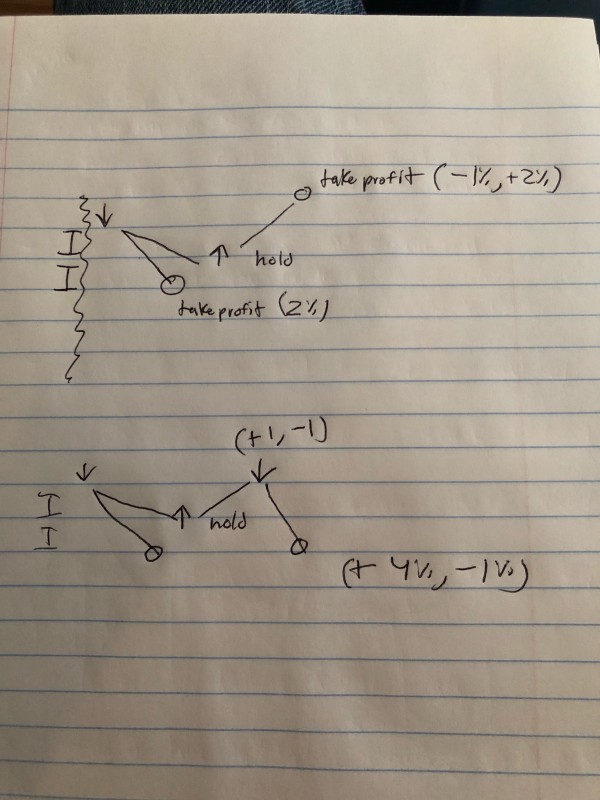 take profit (-1%, +2%)
↓
I
I
↑ hold
take profit (2%)
(+1, -1)
↓ ↓
I
I
↑ hold
(+ 4%, -1%)